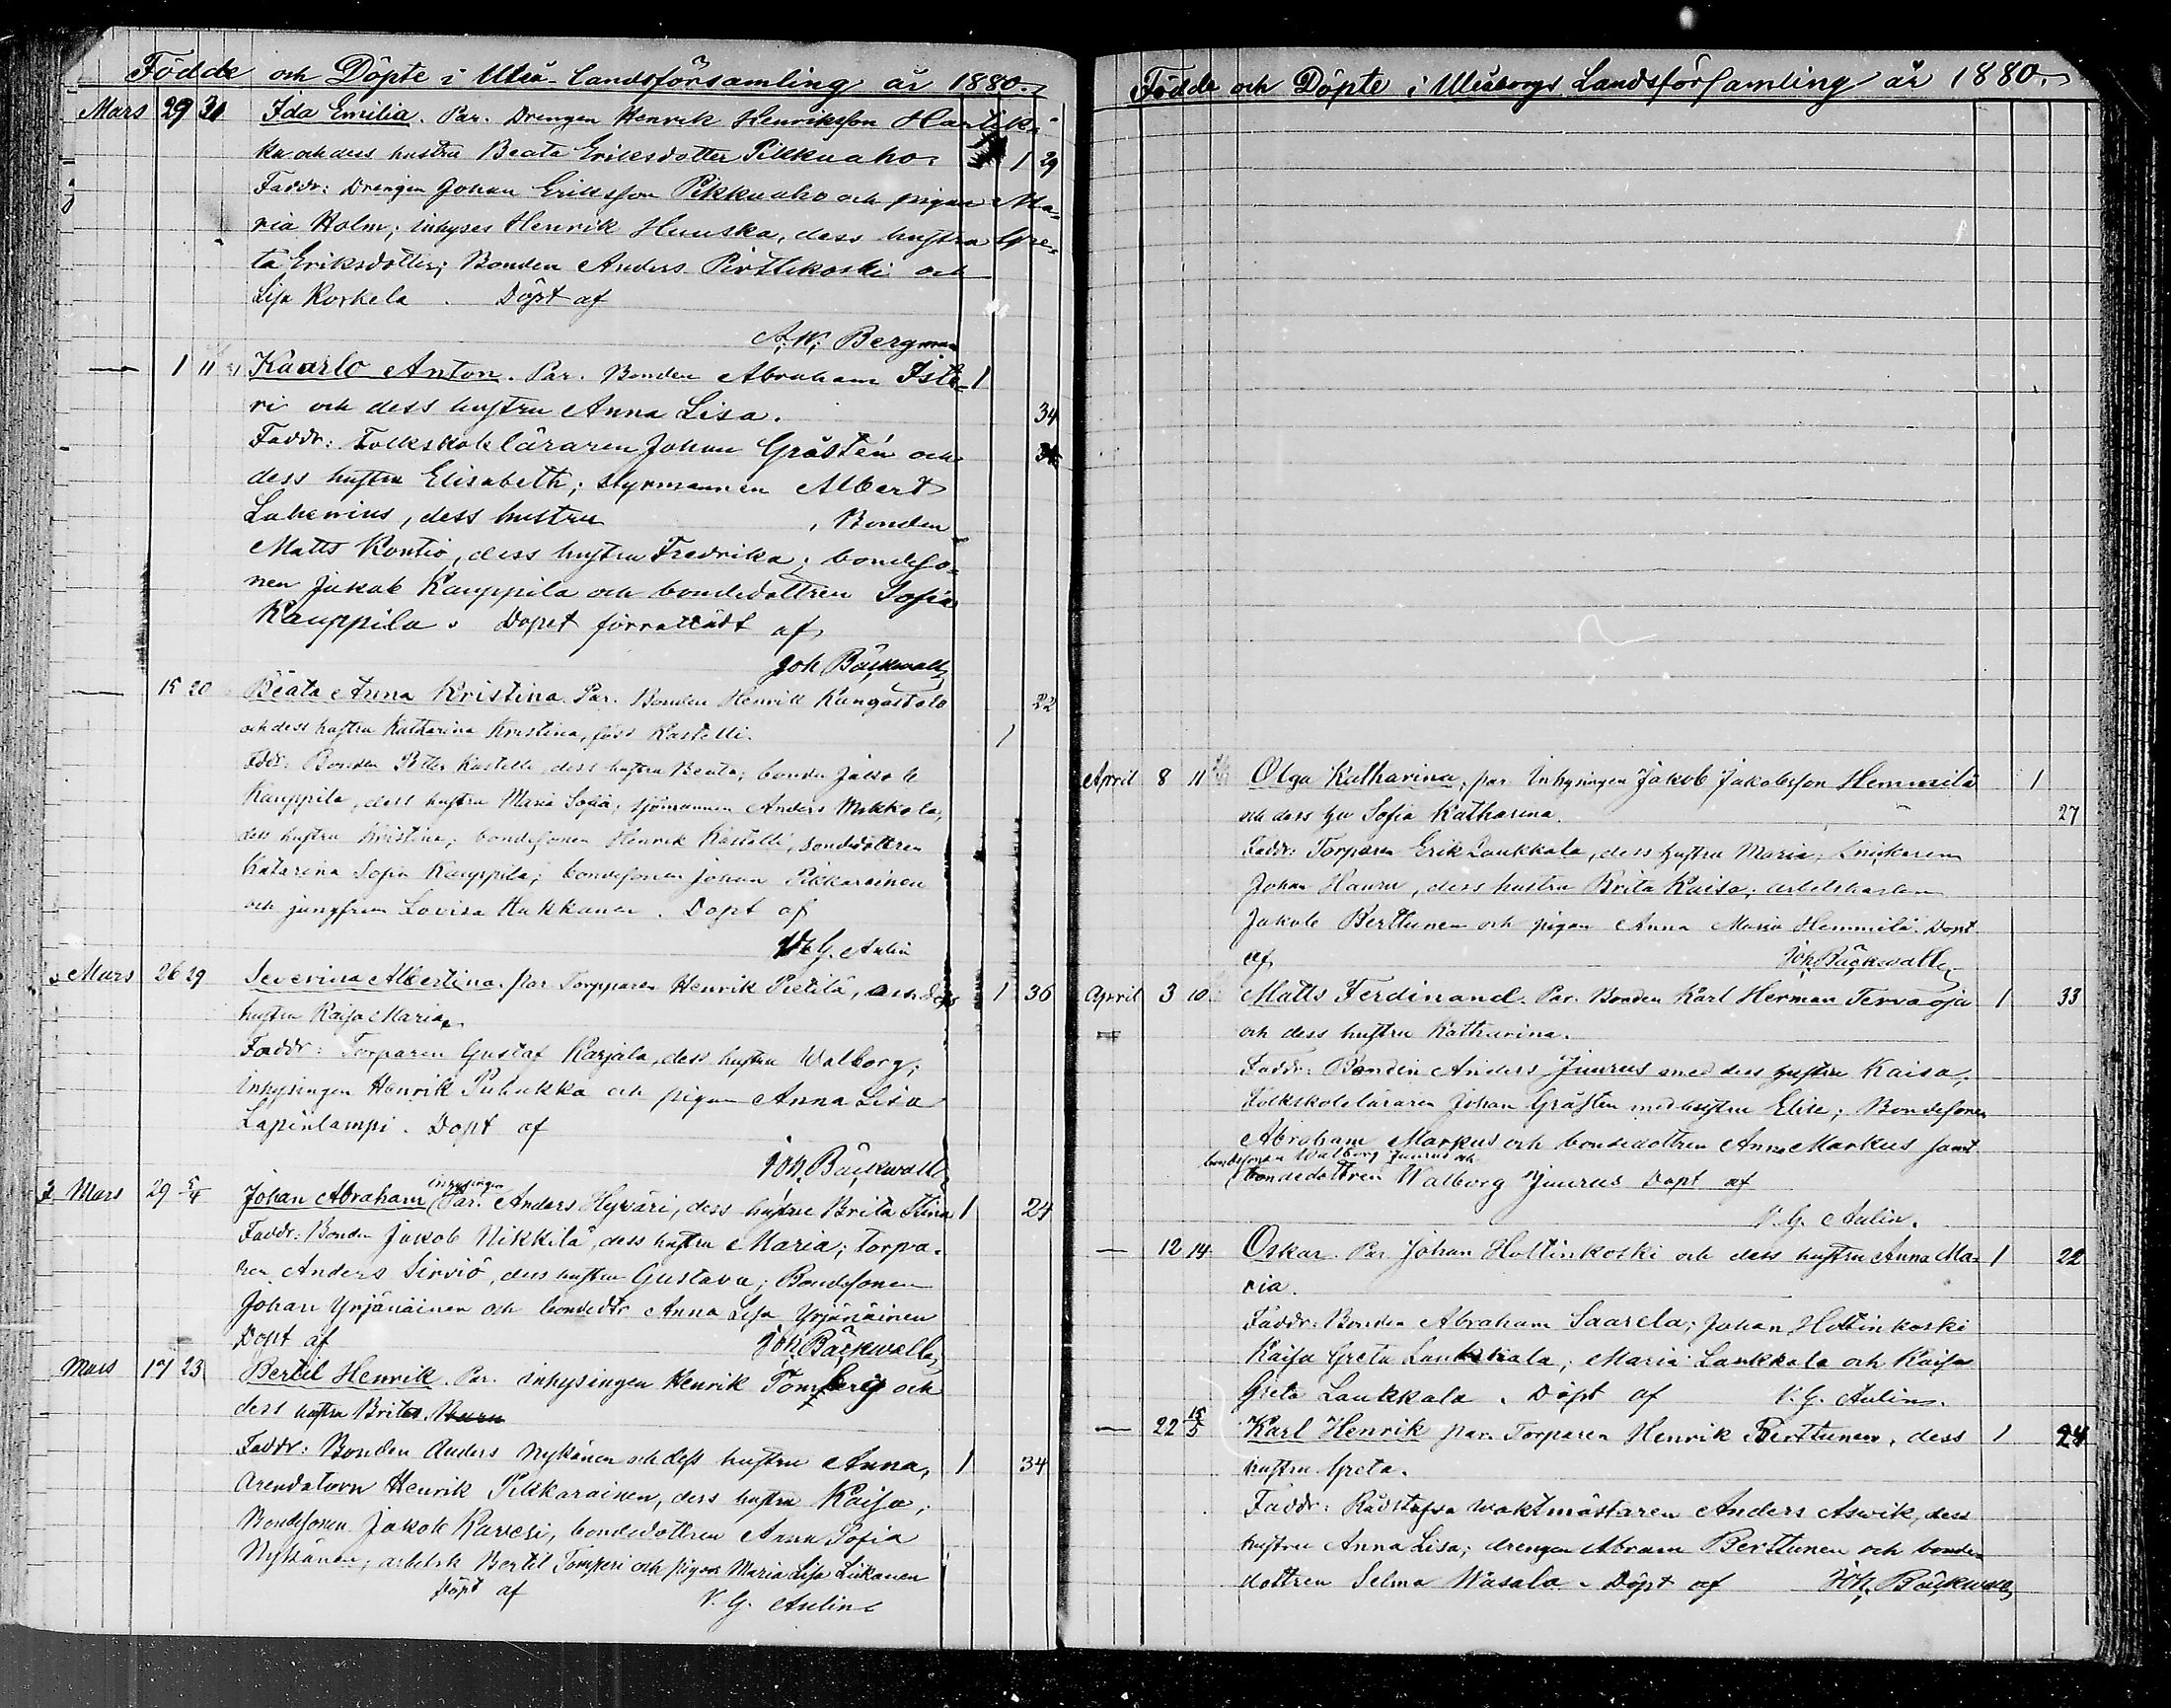 Födde och Döpte i Uleå-Landsförsamling år 1880.
Mars 29 31 Ida Emilia. Par. Drengen Henrik Henriksson Hartik-
ka och dess hustru Beata Eriksdotter Pikkuaho. 1 29
Faddr: Drengen Johan Eriksson Pikkuaho och pigan Ma-
ria Holm; inhyses Henrik Huuska, dess hustru Gre-
ta Eriksdotter; Bonden Anders Pirttikoski och
Lisa Korkela. Döpt af
A. W. Bergman
— 1 11 Kaarlo Anton. Par. Bonden Abraham Iste- 1
ri och dess hustru Anna Lisa. 34
Faddr: Folkskoleläraren Johan Gråstén och
dess hustru Elisabeth; styrmannen Albert
Lahenius, dess hustru , Bonden
Matts Kontio, dess hustru Fredrika; bondeso-
nen Jakob Kauppila och bondedottren Sofia
Kauppila. Dopet förrättadt af
Joh Bäckwall
— 15 20 Beata Anna Kristina. Par. Bonden Henrik Kangastalo 22
och dess hustru Katharina Kristina, född Kastelli. 1
Fddr: Bonden Petter Kastelli dess hustru Beata; bonden Jakob
Kauppila, dess hustru Maria Sofia; sjömannen Anders Mikkola,
dess hustru Kristina; bondesonen Henrik Kastelli, bondedottren
Katarina Sofia Kauppila; bondesonen Johan Pikkarainen
och jungfrun Lovisa Hukkanen. Döpt af
V. G. Aulin
Mars 26 29 Severina Albertina. Par Torpparen Henrik Pietilä, och dess 1 36
hustru Kajsa Maria.
Faddr: Torparen Gustaf Karjala, dess hustru Walborg;
inhysingen Henrik Puhakka och pigan Anna Lisa
Lapinlampi. Döpt af
Joh. Bäckwall
Mars 29 5/4 Johan Abraham. Par. inhysingen Anders Hyväri, dess hustru Brita Stina 1 24
Faddr: Bonden Jakob Nikkilä, dess hustru Maria; torpa-
ren Anders Sirviö, dess hustru Gustava; Bondesonen
Johan Yrjänäinen och bondedtr Anna Lisa Yrjänäinen
Döpt af Joh. Bäckwall
Mars 17 23 Bertil Henrik. Par. inhysingen Henrik Tomperi och
dess hustru Brita
Faddr: Bonden Anders Nykänen och dess hustru Anna, 1 34
Arendatorn Henrik Pikkarainen, dess hustru Kajsa;
Bondesonen Jakob Karvesi, bondedottren Anna Sofia
Nykänen; arbetsk Bertil Tomperi och pigan Maria Lisa Liikanen
Döpt af V. G. Aulin
Födde och Döpte i Uleåborgs Landsförsamling år 1880.
April 8 11 Olga Katharina, par Inhysingen Jakob Jakobsson Hemmilä 1
och dess hu Sofia Katharina. 27
Faddr: Torparen Erik Laukkala, dess hustru Maria; Snickaren
Johan Hauru, dess hustru Brita Kaisa; arbetskarlen
Jakob Berttunen och pigan Anna Maria Hemmilä. Döpt
af Joh. Bäckwall
April 3 10 Matts Ferdinand. Par. Bonden Karl Herman Tervaoja 1 33
och dess hustru Katharina.
Faddr: Bonden Anders Juurus med dess hustru Kaisa,
Folkskoleläraren Johan Gråsten med hustru Elise; Bondesonen
Abraham Markus och bondedottren Anna Markus samt
bondesonen Walborg Juurus och
bondedottren Walborg Juurus Döpt af
V. G. Aulin.
— 12 14 Oskar. Par Johan Hottinkoski och dess hustru Anna Ma- 1 22
ria.
Faddr: Bonden Abraham Saarela; Johan Hottinkoski
Kaisa Greta Laukkala; Maria Laukkala och Kaisa
Greta Laukkala. Döpt af V. G. Aulin.
— 22 15/5 Karl Henrik par. Torparen Henrik Berttunen, dess 1 24
hustru Greta.
Faddr: Rådstufva waktmästaren Anders Aswik, dess
hustru Anna Lisa; drengen Abram Berttunen och bonde-
dottren Selma Wasala. Döpt af Joh. Bäckwall